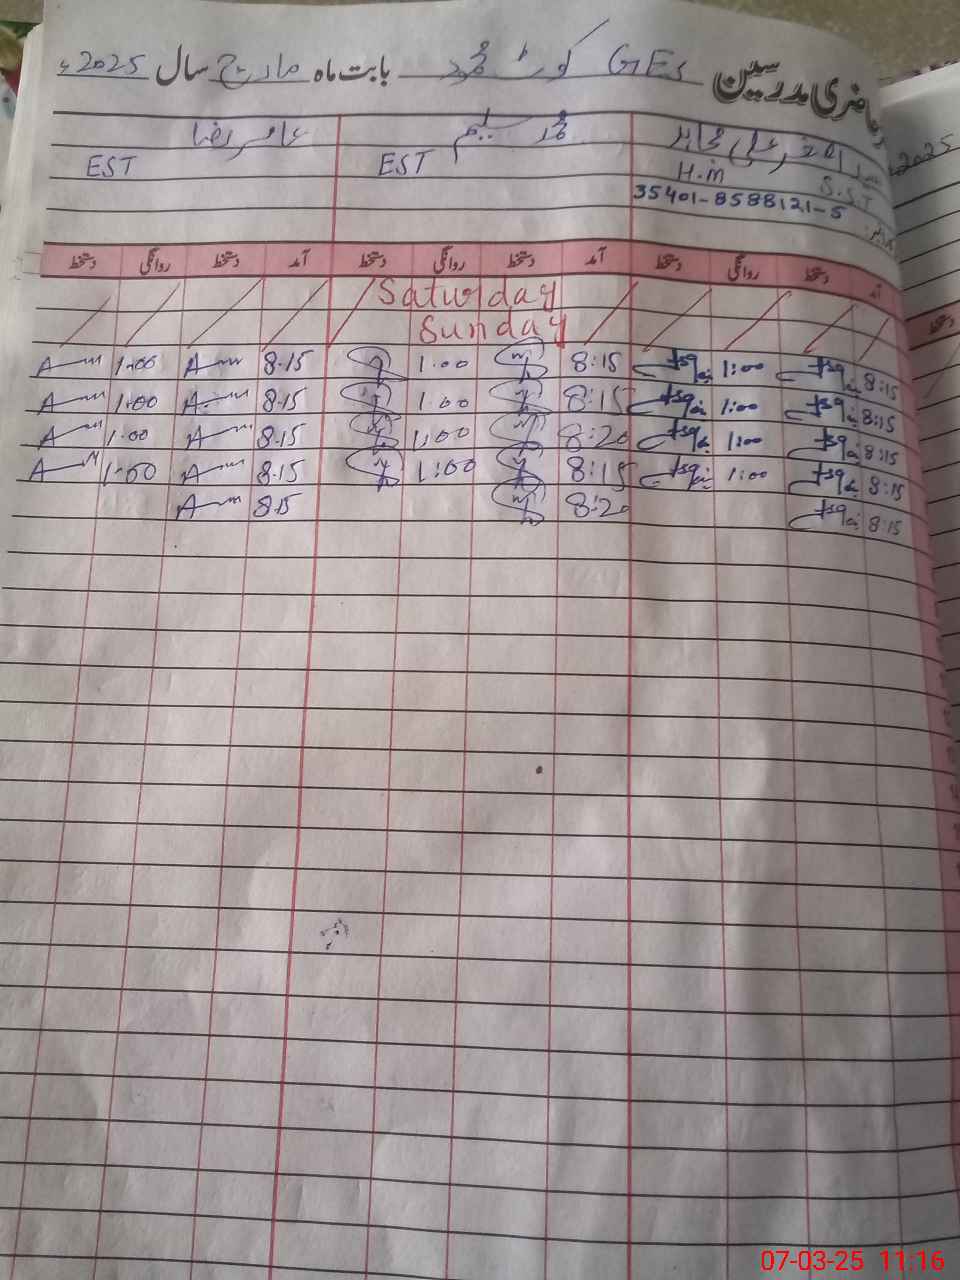 حاضری مدرسین GES کوٹ محمد بابت ماہ مارچ سال 2025ء
محمد سلیم عامر رضا
H.M S.S.T EST EST
35401-8588121-5
2025
آمد دستخط روانگی دستخط آمد دستخط روانگی دستخط آمد دستخط روانگی دستخط
Saturday
Sunday
8:15 1:00 8:15 1:00 8.15 1.00
8:15 1:00 8:15 1.00 8.15 1.00
8:15 1:00 8:20 1:00 8.15 1.00
8:15 1:00 8:15 1:00 8.15 1.00
8:15 8:20 8.15
07-03-25 11:16